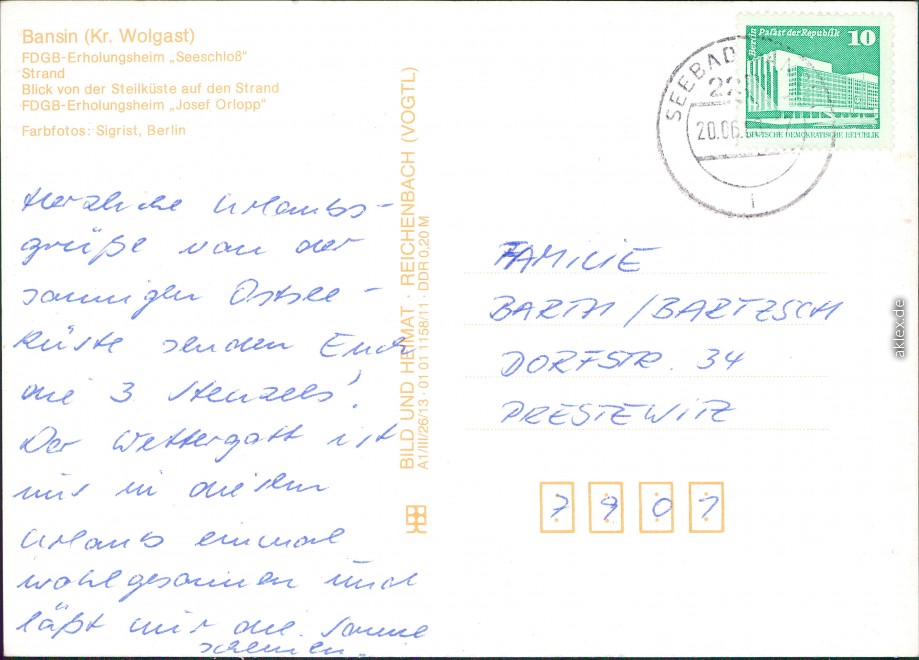 Bansin (Kr. Wolgast)
FDGB-Erholungsheim „Seeschloß"
Strand
Blick von der Steilküste auf den Strand
FDGB-Erholungsheim „Josef Orlopp"
Farbfotos: Sigrist, Berlin
Herzliche Urlaubs-
grüße von der
sonnigen Ostsee-
Küste senden Euch
die 3 Stenzels!
Der Wettergott ist
uns in diesem
Urlaub einmal
wohlgesonnen und
läßt nur die Sonne
scheinen.
BILD UND HEIMAT · REICHENBACH (VOGTL)
A1/III/26/13 · 01 01 1158/11 · DDR 0,20 M
Berlin Palast der Republik 10
DEUTSCHE DEMOKRATISCHE REPUBLIK
SEEBAD
22
20.06.
i
FAMILIE
BARTH / BARTZSCH
DORFSTR. 34
PRESTEWITZ
7901
aklex.de